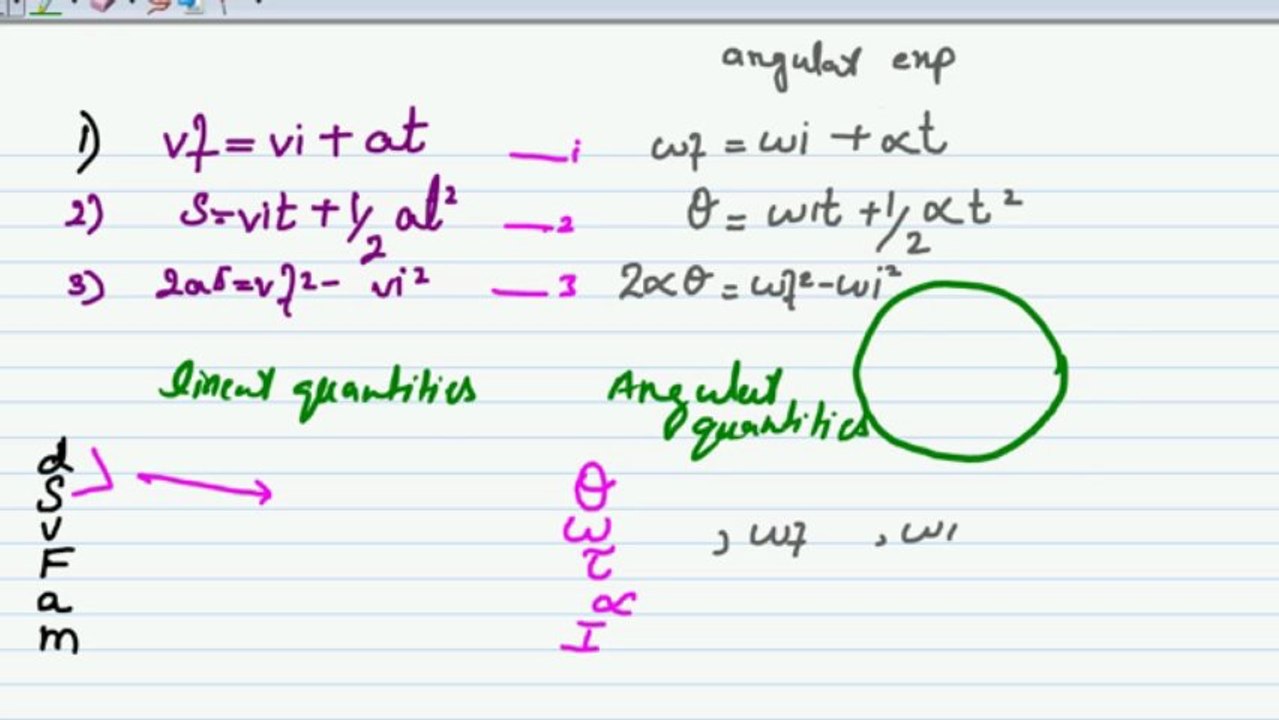 angular exp
1) vf = vi + at —i ωf = ωi + αt
2) S = vit + 1/2 at² —2 θ = ωit + 1/2 αt²
3) 2as = vf² - vi² —3 2αθ = ωf² - ωi²
linear quantities Angular quantities
d
S θ
v ω , ωf , ωi
F τ
a α
m I